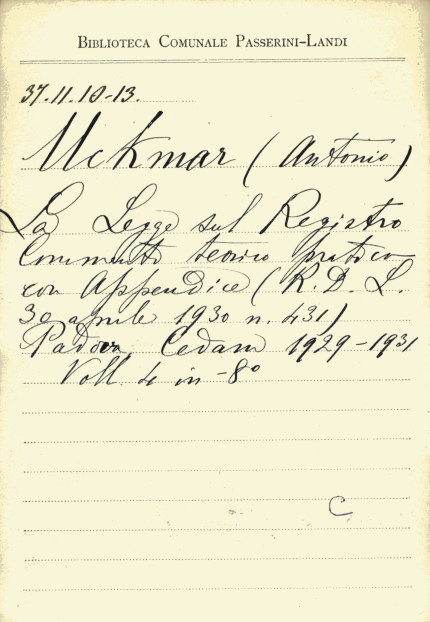 BIBLIOTECA COMUNALE PASSERINI-LANDI
37.11.10-13.
Uckmar (Antonio)
La Legge sul Registro
Commento teorico pratico
con Appendice (R. D. L.
30 aprile 1930 n. 431)
Padova, Cedam 1929-1931
Voll. 4 in -8º
C